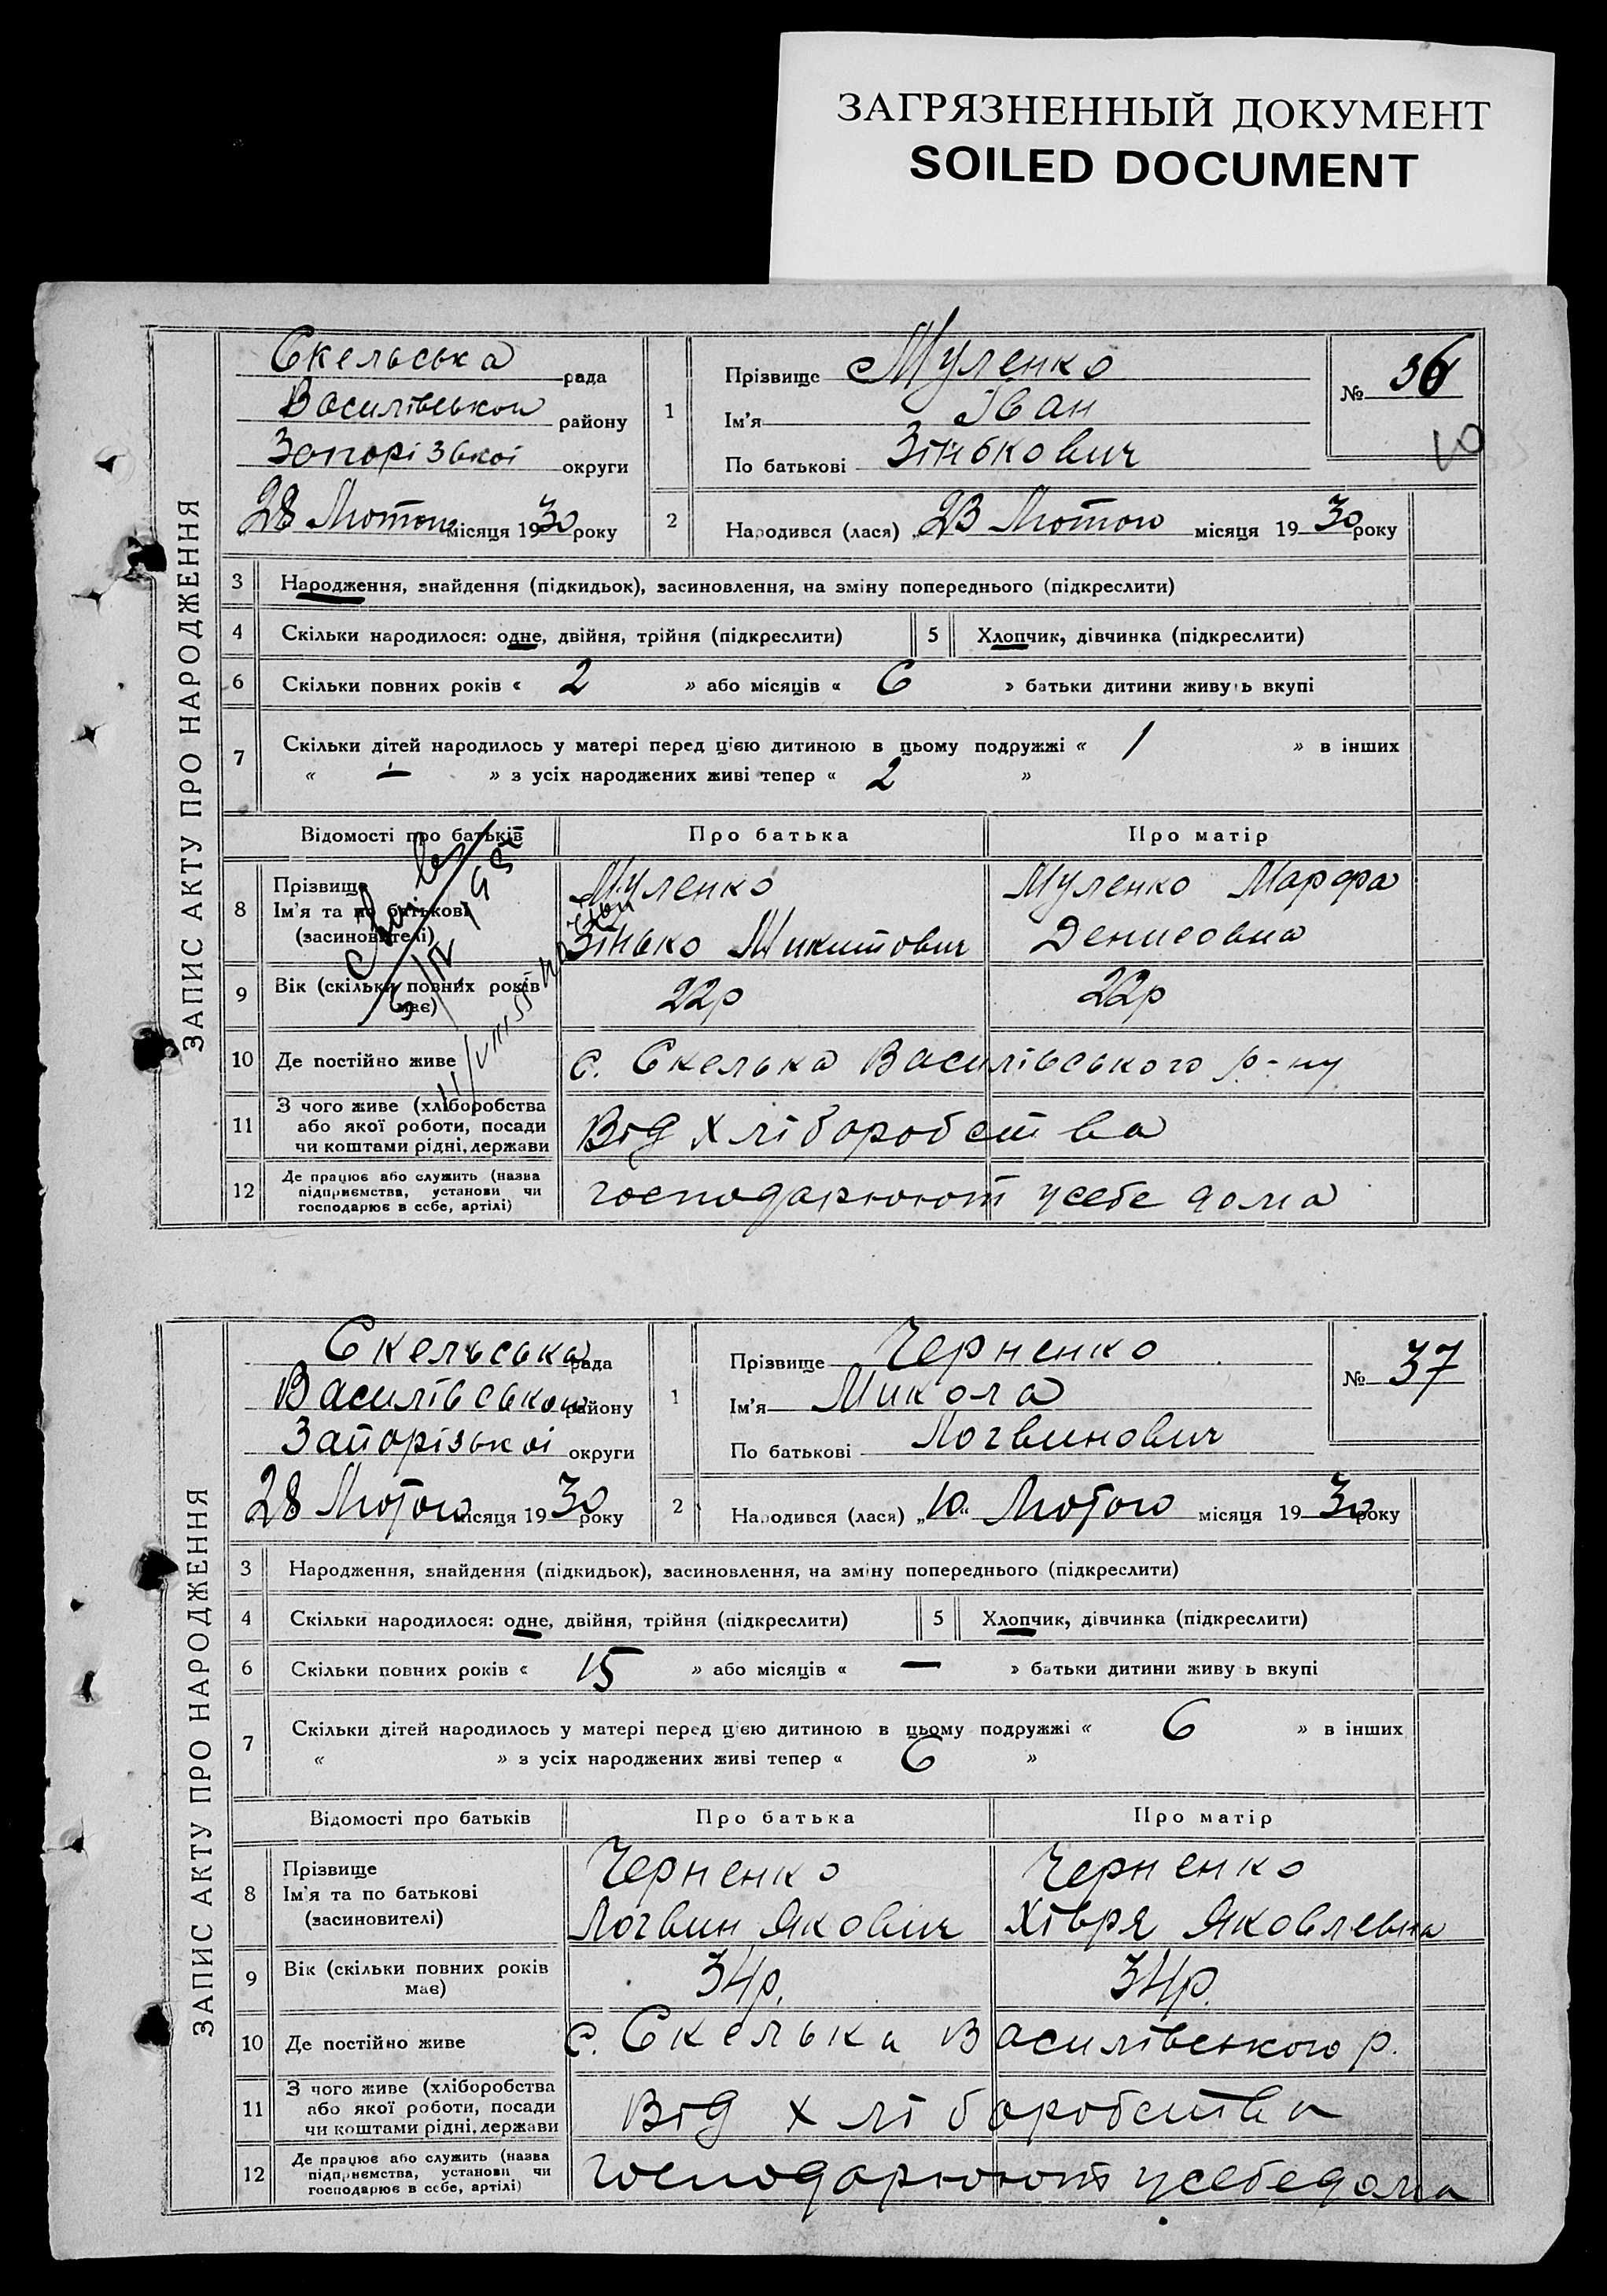 ЗАГРЯЗНЕННЫЙ ДОКУМЕНТ
SOILED DOCUMENT
ЗАПИС АКТУ ПРО НАРОДЖЕННЯ
Скельська рада
Василівського району
Запорізької округи
28 Лютого місяця 1930 року
1 Прізвище Муленко
Ім'я Іван
По батькові Зінькович
№ 36
10
2 Народився (лася) 23 Лютого місяця 1930 року
3 Народження, знайдення (підкидьок), засиновлення, на зміну попереднього (підкреслити)
4 Скільки народилося: одне, двійня, трійня (підкреслити) 5 Хлопчик, дівчинка (підкреслити)
6 Скільки повних років « 2 » або місяців « 6 » батьки дитини живуть вкупі
7 Скільки дітей народилось у матері перед цією дитиною в цьому подружжі « 1 » в інших
« — » з усіх народжених живі тепер « 2 »
Відомості про батьків Про батька Про матір
8 Прізвище
Ім'я та по батькові
(засиновителі)
Муленко
Зінько Микитович
Муленко Марфа
Денисовна
9 Вік (скільки повних років має) 22р 22р
10 Де постійно живе с. Скелька Василівського р-ну
11 З чого живе (хліборобства
або якої роботи, посади
чи коштами рідні, держави
Від хліборобства
12 Де працює або служить (назва
підприємства, установи чи
господарює в себе, артілі)
господарюють усебе дома
ЗАПИС АКТУ ПРО НАРОДЖЕННЯ
Скельська рада
Василівського району
Запорізької округи
28 Лютого місяця 1930 року
1 Прізвище Черненко
Ім'я Микола
По батькові Логвинович
№ 37
2 Народився (лася) „10“ Лютого місяця 1930 року
3 Народження, знайдення (підкидьок), засиновлення, на зміну попереднього (підкреслити)
4 Скільки народилося: одне, двійня, трійня (підкреслити) 5 Хлопчик, дівчинка (підкреслити)
6 Скільки повних років « 15 » або місяців « — » батьки дитини живуть вкупі
7 Скільки дітей народилось у матері перед цією дитиною в цьому подружжі « 6 » в інших
« » з усіх народжених живі тепер « 6 »
Відомості про батьків Про батька Про матір
8 Прізвище
Ім'я та по батькові
(засиновителі)
Черненко
Логвин Якович
Черненко
Хівря Яковлевна
9 Вік (скільки повних років має) 34р. 34р.
10 Де постійно живе с. Скелька Василівського р.
11 З чого живе (хліборобства
або якої роботи, посади
чи коштами рідні, держави
Від хліборобства
12 Де працює або служить (назва
підприємства, установи чи
господарює в себе, артілі)
господарюють усебе дома